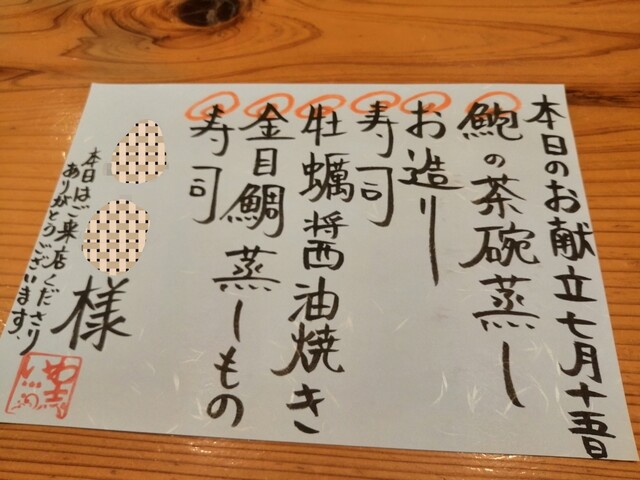 本日のお献立七月十五日
鮑の茶碗蒸し
お造り
寿司
牡蠣醤油焼き
金目鯛蒸しもの
寿司
様
本日はご来店くださり
ありがとうございます。